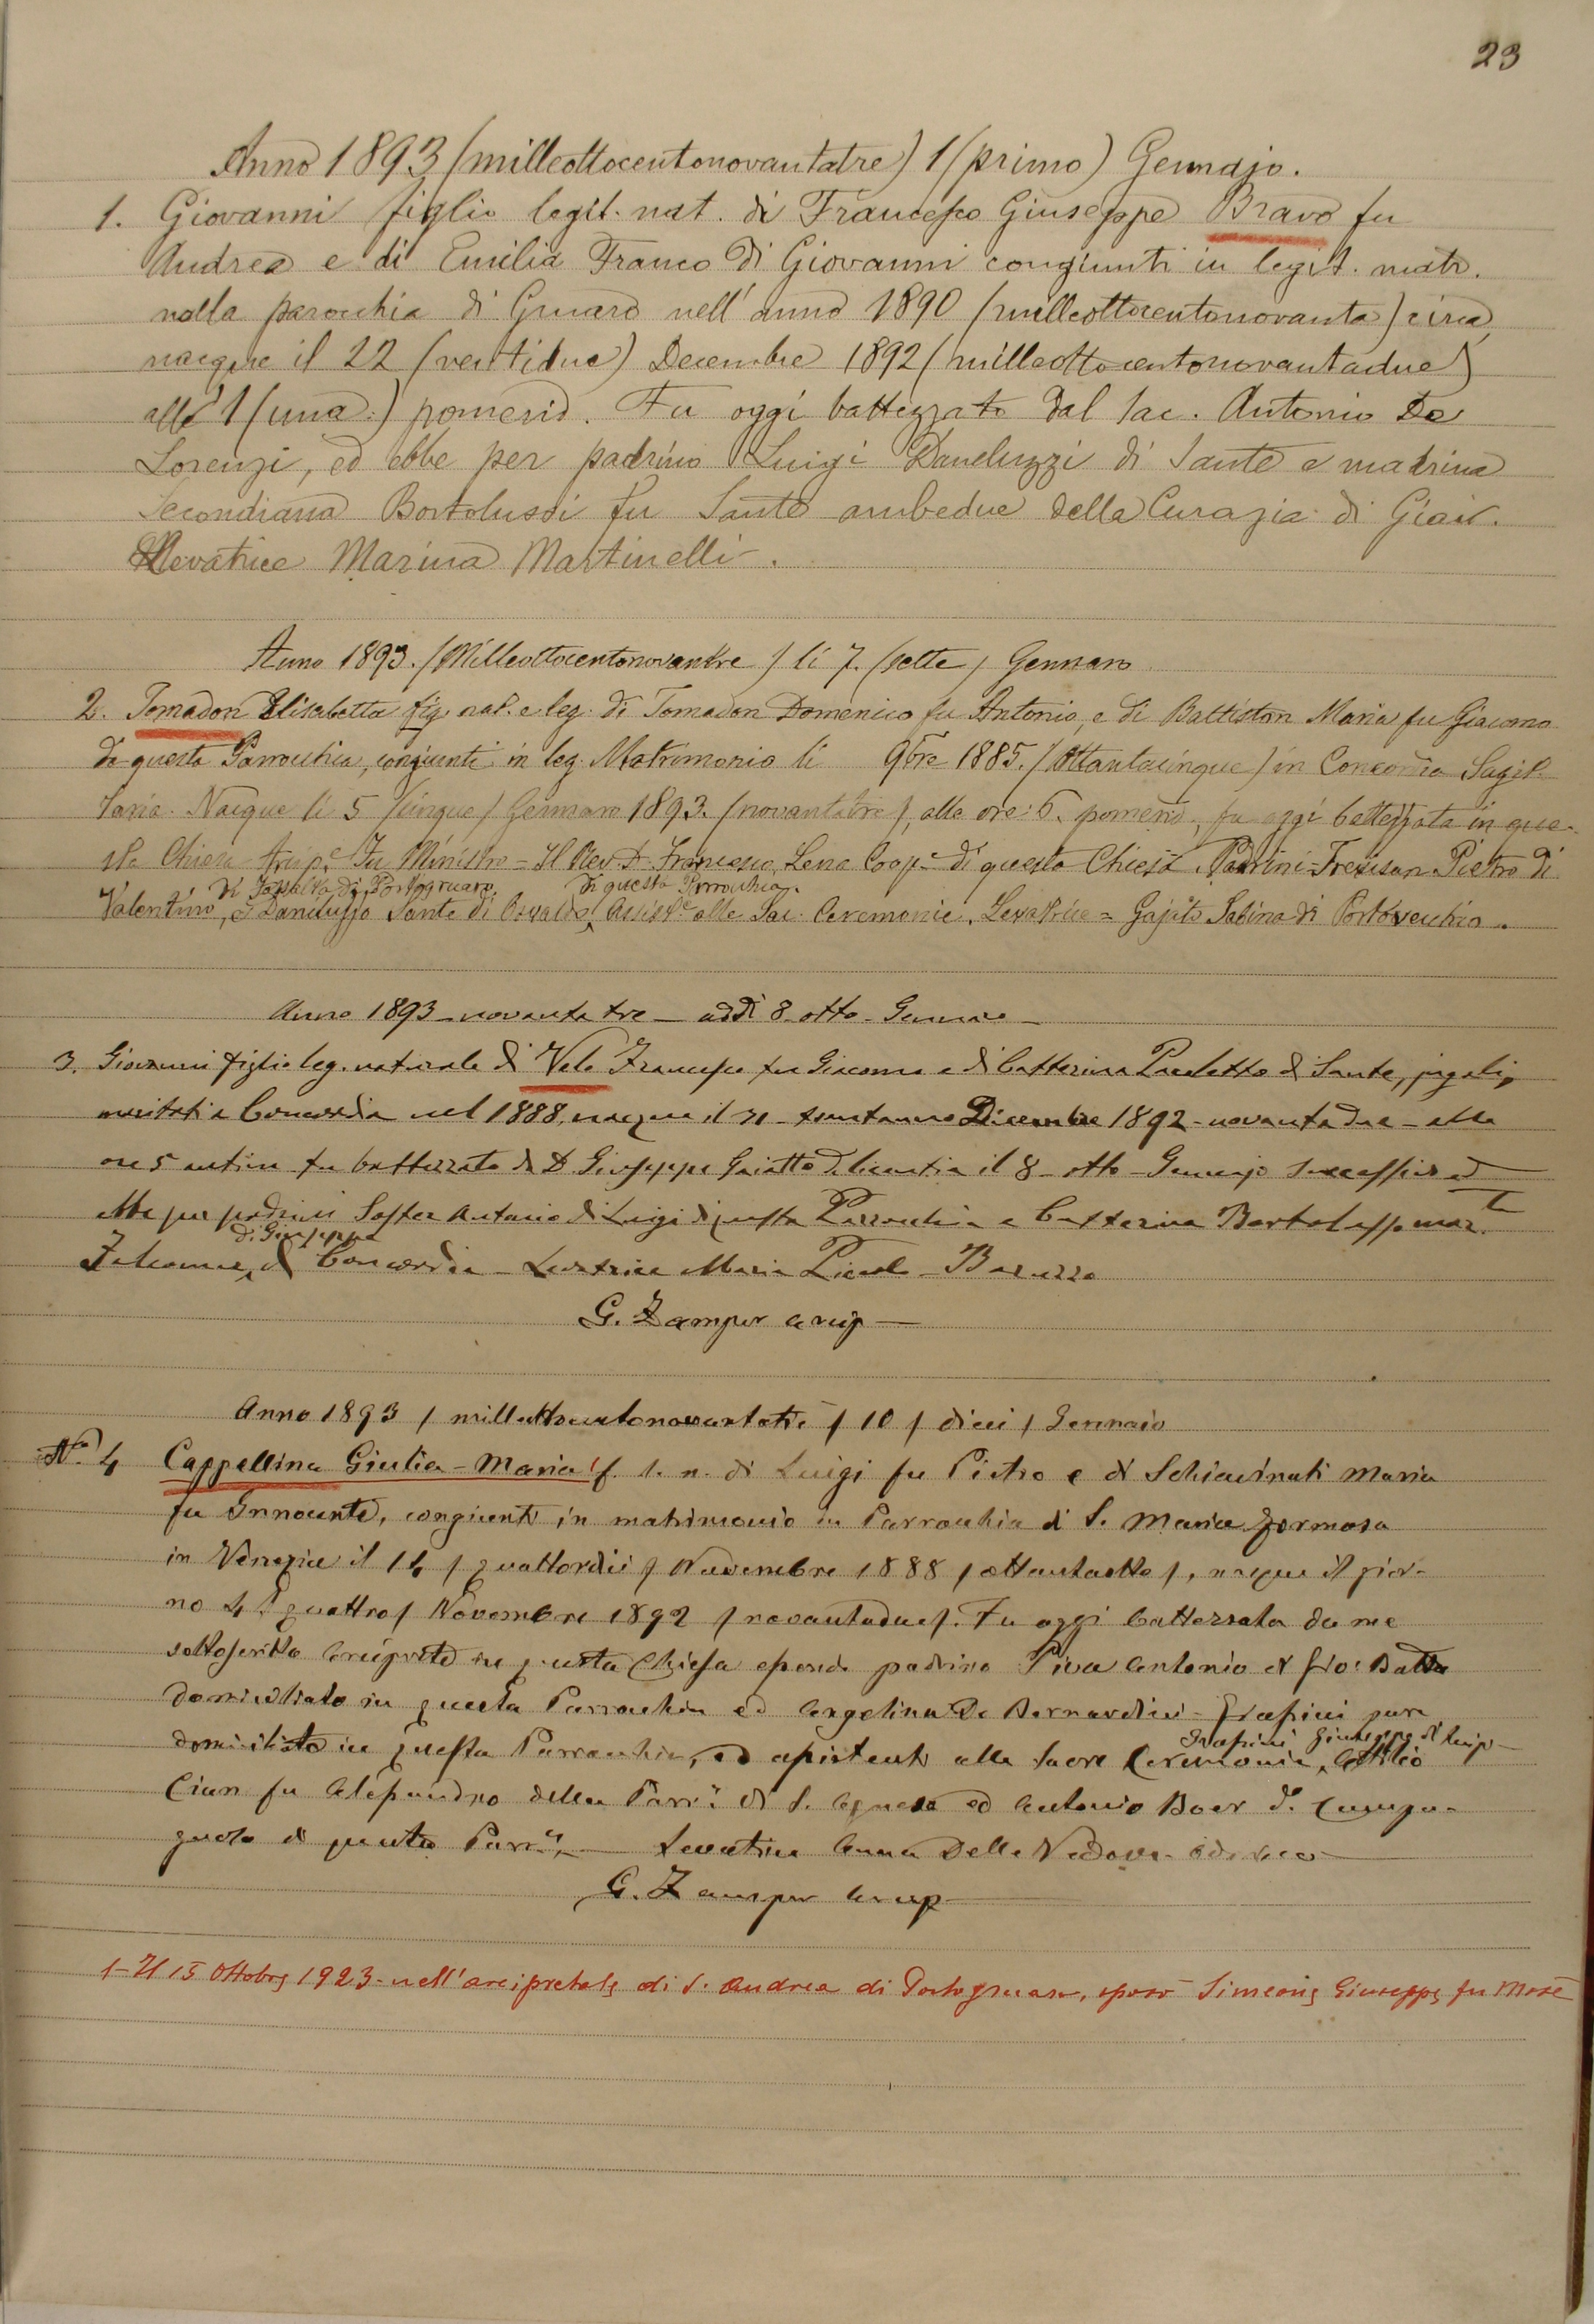 23
Anno 1893 (milleottocentonovantatre) 1 (primo) Gennajo.
1. Giovanni figlio legit. nat. di Francesco Giuseppe Bravo fu
Andrea e di Emilia Franco di Giovanni congiunti in legit. matr.
nella parocchia di Gruaro nell'anno 1890 (milleottocentonovanta) circa,
nacque il 22 (ventidue) Decembre 1892 (milleottocentonovantadue)
alle 1 (una) pomerid. Fu oggi battezzato dal Sac. Antonio De
Lorenzi, ed ebbe per padrino Luigi Daneluzzi di Sante e madrina
Secondiana Bortolussi fu Sante ambedue della Curazia di Giai.
Levatrice Marina Martinelli.
Anno 1893. (Milleottocentonovantre) li 7. (sette) Gennaro
2. Tomadon Elisabetta fig. nat. e leg. di Tomadon Domenico fu Antonio, e di Battiston Maria fu Giacomo
da questa Parrochia, congiunti in leg. Matrimonio li 9bre 1885. (Ottantacinque) in Concordia Sagit-
taria. Nacque li 5 (cinque) Gennaro 1893. (novantatre), alle ore 6. pomerid., fu oggi battezzata in que-
sta Chiesa Arcip.e Fu Ministro = Il Rev. D. Francesco Lena Coop.e di questa Chiesa. Padrini = Trevisan Pietro di
di Portogruaro. di questa Parrochia.
Valentino, e Daniluzzo Sante di Osvaldo, Assist.e alle Sac. Ceremonie. Levatrice = Gajato Sabina di Portovecchio.
Anno 1893 - novantatre - addì 8 - otto - Gennaro
3. Giovanni figlio leg. naturale di Vele Francesco fu Giacomo e di Catterina Paoletto di Sante, jugali,
maritati a Concordia nel 1888, nacque il 31 - trentauno Dicembre 1892 - novantadue - alle
ore 5 antim. fu battezzato da D. Giuseppe Gaiatto di licentia il 8 - otto - Gennajo successivo ed
ebbe per padrini Antonio di Luigi di questa Parrochia e Catterina Bortolusso mar.ta
di Giuseppe
di Concordia - Levatrice Maria Picolo - Baruzzo
G. Zamper Arcip
Anno 1893 / milleottocentonovantatre / 10 / dieci / Gennaio
No. 4 Cappellina Giulia - Maria f. l. n. di Luigi fu Pietro e di Schiavinati Maria
fu Innocente, congiunti in matrimonio in Parrochia di S. Maria Formosa
in Venezia il 14 / quattordici / Novembre 1888 / ottantaotto /, nacque il gior-
no 4 / quattro / Novembre 1892 / novantadue /. Fu oggi battezzata da me
sottoscritto Arciprete in questa Chiesa essendo padrino Piva Antonio di Gio: Batta
domiciliato in questa Parrochia ed Angelina De Bernardini - Frasini pure
domiciliata in questa Parrochia, ed assistenti alle sacre Ceremonie, Attilio
Frasini Giuseppe di Luigi
Cian fu Alessandro della Parr.a di S. Agnese ed Antonio Boer d.o Campa-
gnolo di questa Parr.a - Levatrice Anna Della Vedova
G. Zamper Arcip
1 - Il 15 Ottobre 1923 - nell'arcipretale di S. Andrea di Portogruaro, sposò Simeoni Giuseppe fu Mosè